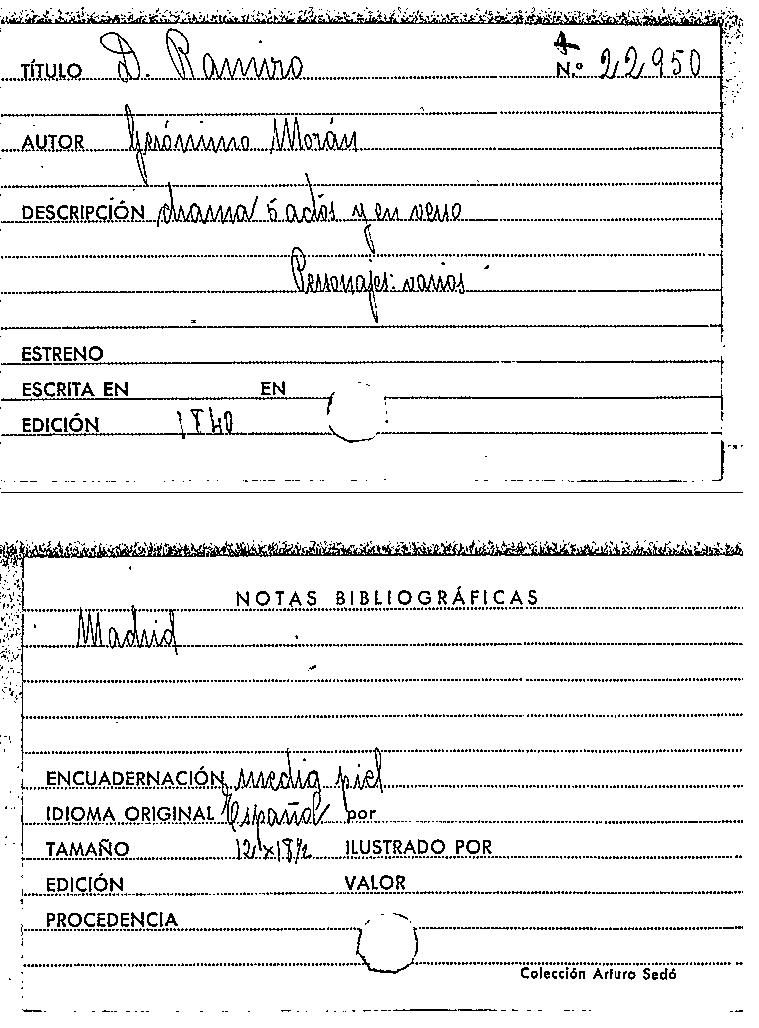 TÍTULO D. Ramiro N.º 22950
AUTOR Gerónimo Morán
DESCRIPCIÓN drama 5 actos y en verso
Personajes: varios
ESTRENO
ESCRITA EN EN
EDICIÓN 1840
NOTAS BIBLIOGRÁFICAS
Madrid
ENCUADERNACIÓN media piel
IDIOMA ORIGINAL Español por
TAMAÑO 12 x 18½ ILUSTRADO POR
EDICIÓN VALOR
PROCEDENCIA
Colección Arturo Sedó